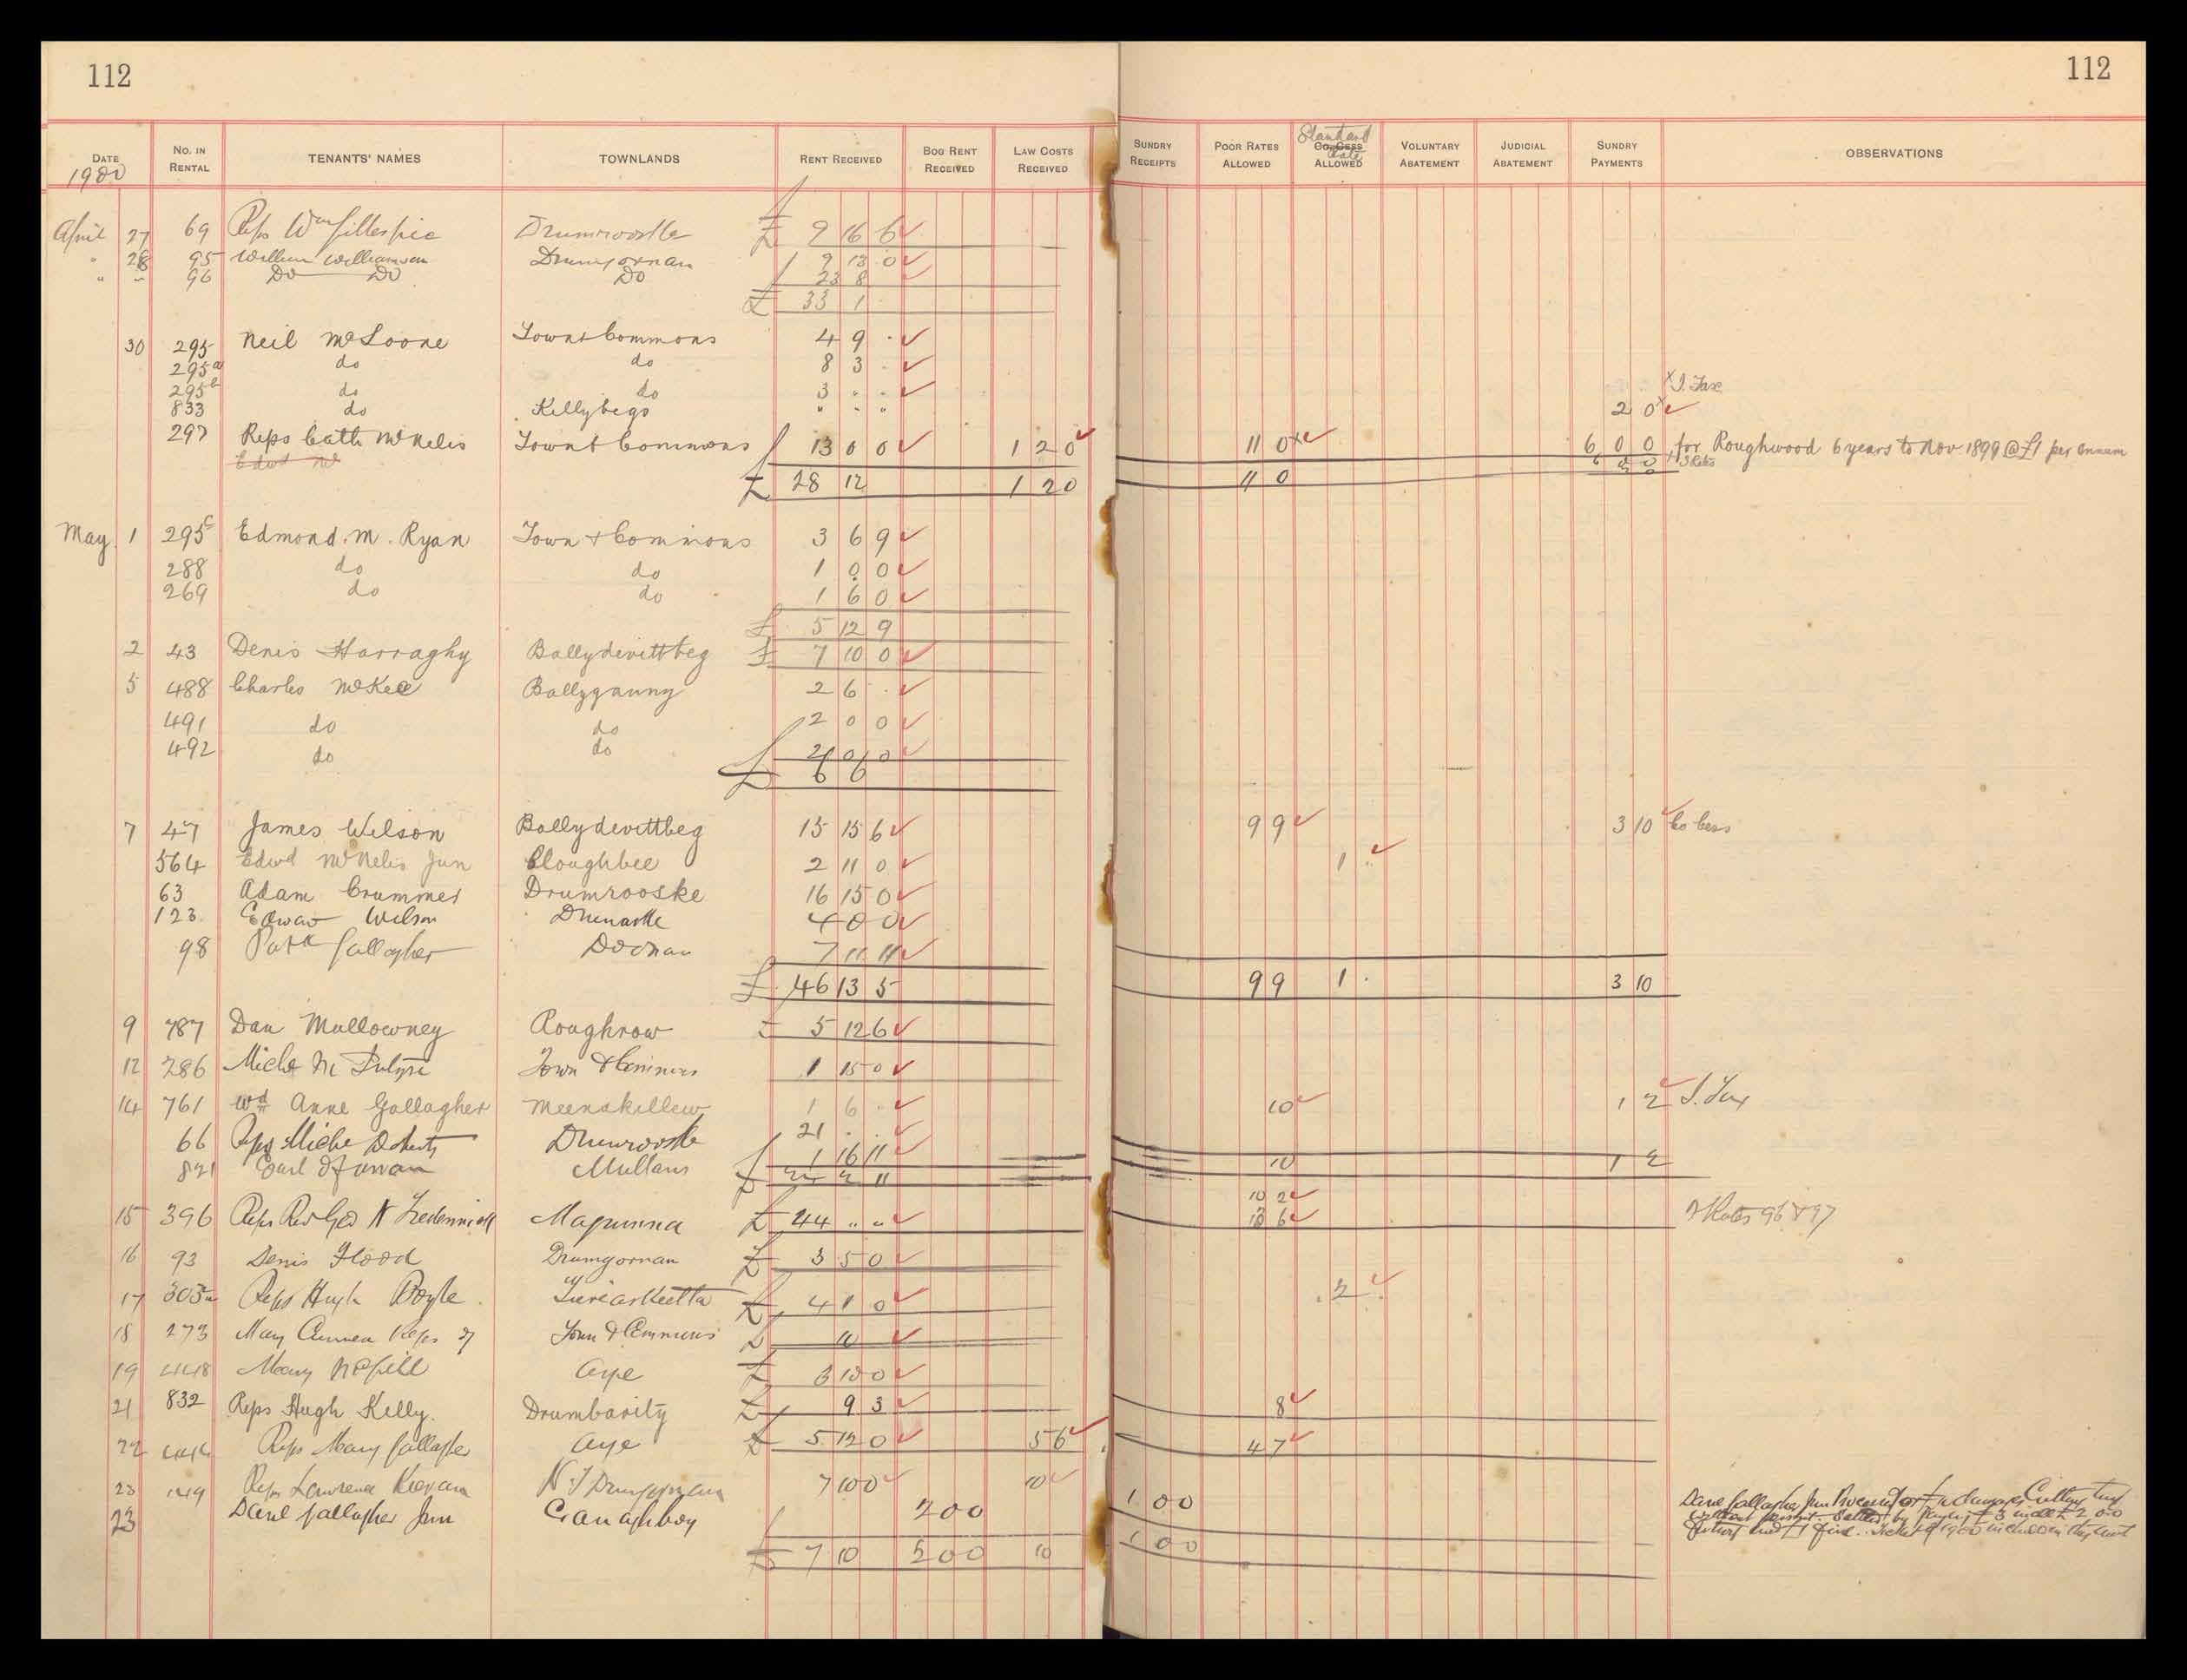 112
112
DATE 1900 | NO. IN RENTAL | TENANTS' NAMES | TOWNLANDS | RENT RECEIVED | BOG RENT RECEIVED | LAW COSTS RECEIVED | SUNDRY RECEIPTS | POOR RATES ALLOWED | Standard Rate Co. Cess ALLOWED | VOLUNTARY ABATEMENT | JUDICIAL ABATEMENT | SUNDRY PAYMENTS | OBSERVATIONS
April 27 69 Reps Wm Gillespie Drumrooske £ 9 16 6
" 28 95 William Williamson Drumgornan 9 13 0
" " 96 Do Do Do 23 8
£ 33 1
30 295 Neil McLoone Town & Commons 4 9 .
295a do do 8 3 .
295b do do 3 . . I. Tax
833 do Killybegs " " " 2 0
297 Reps Cath McNelis Town & Commons 13 0 0 1 2 0 11 0 6 0 0 for Roughwood 6 years to Nov 1899 @ £1 per annum
Edwd Mc
£ 28 12 1 2 0 11 0
May 1 295c Edmond. M. Ryan Town & Commons 3 6 9
288 do do 1 0 0
269 do do 1 6 0
£ 5 12 9
2 43 Denis Harraghy Ballydevittbeg £ 7 10 0
5 488 Charles McKee Ballygauny 2 6 .
491 do do 2 0 0
492 do do 2 0 0
£ 6 6
7 47 James Wilson Ballydevittbeg 15 15 6 9 9 3 10 Co Cess
564 Edwd McNelis Jun Cloughbee 2 11 0 1 .
63 Adam Crummer Drumrooske 16 15 0
123 Edward Wilson 4 0 0
98 Patk Gallagher Doonan 7 11 11
£ 46 13 5 9 9 1 . 3 10
9 787 Dan Mullowney Roughrow £ 5 12 6
12 286 Michl McIntyre Town & Commons 1 15 0
14 761 Wd Anne Gallagher Meenakillew 1 6 . 10 1 2 I. Tax
66 Reps Michl Doherty Drumrooske 21 . .
821 Earl of Arran Mullans 1 16 11
£ 24 2 11 10 1 2
10 2
15 396 Reps Rev Geo N Tredennick £ 44 " " 6 Rates 96 & 97
16 93 Denis Flood Drumgornan £ 3 5 0
17 303a Reps Hugh Boyle £ 4 1 0 . 2 .
18 273 Mary Reps of Town & Commons £ 10
19 448 Mary McGill Aype £ 3 10 0
21 832 Reps Hugh Kelly. Drumbarity £ 9 3 8
22 Reps Mary Gallagher Aype £ 5 12 0 5 6 4 7
23 Reps Lawrence Drumgornan 7 10 0 10
23 Danl Gallagher Jun 2 0 0 1 0 0 Danl Gallagher Jun for damages Cutting turf
without permit. Settled by paying £3
£ 7 10 2 0 0 10 1 0 0